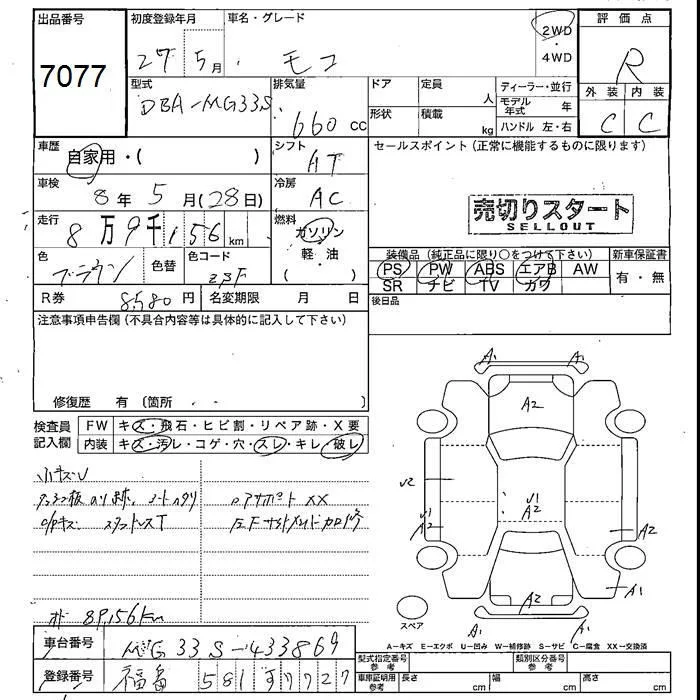 出品番号 初度登録年月 車名・グレード 評価点
7077 27 5月 モコ 2WD・4WD R
外装 内装
C C
型式 排気量 ドア 定員 人 ディーラー・並行
DBA-MG33S 660cc 形状 積載 kg モデル年式 年
ハンドル 左・右
車歴 自家用・( ) シフト AT セールスポイント(正常に機能するものに限ります)
車検 8年 5月(28日) 冷房 AC
売切りスタート
SELLOUT
走行 8万9千156km 燃料 ガソリン・軽・油
装備品(純正品に限り○をつけて下さい) 新車保証書
色 ブラウン 色替 色コード ZBF PS PW ABS エアB AW 有・無
SR ナビ TV カワ
R券 8580円 名変期限 月 日 後日品
注意事項申告欄(不具合内容等は具体的に記入して下さい)
修復歴 有〔箇所 〕
検査員記入欄 FW キズ・飛石・ヒビ割・リペア跡・X要
内装 キズ・汚レ・コゲ・穴・スレ・キレ・破レ
小キズU
ロアサポート XX
スタットレスT
メーター 89,156km
A1 A1
A2
U2
U1
A2
U1
A2
A2
A2
A1
A1 A1
スペア
A-キズ E-エクボ U-凹み W-補修跡 S-サビ C-腐食 XX-交換済
車台番号 MG33S-433869
型式指定番号参考 類別区分番号参考
登録番号 福島 581 す 7727
車庫証明用参考 長さ cm 幅 cm 高さ cm